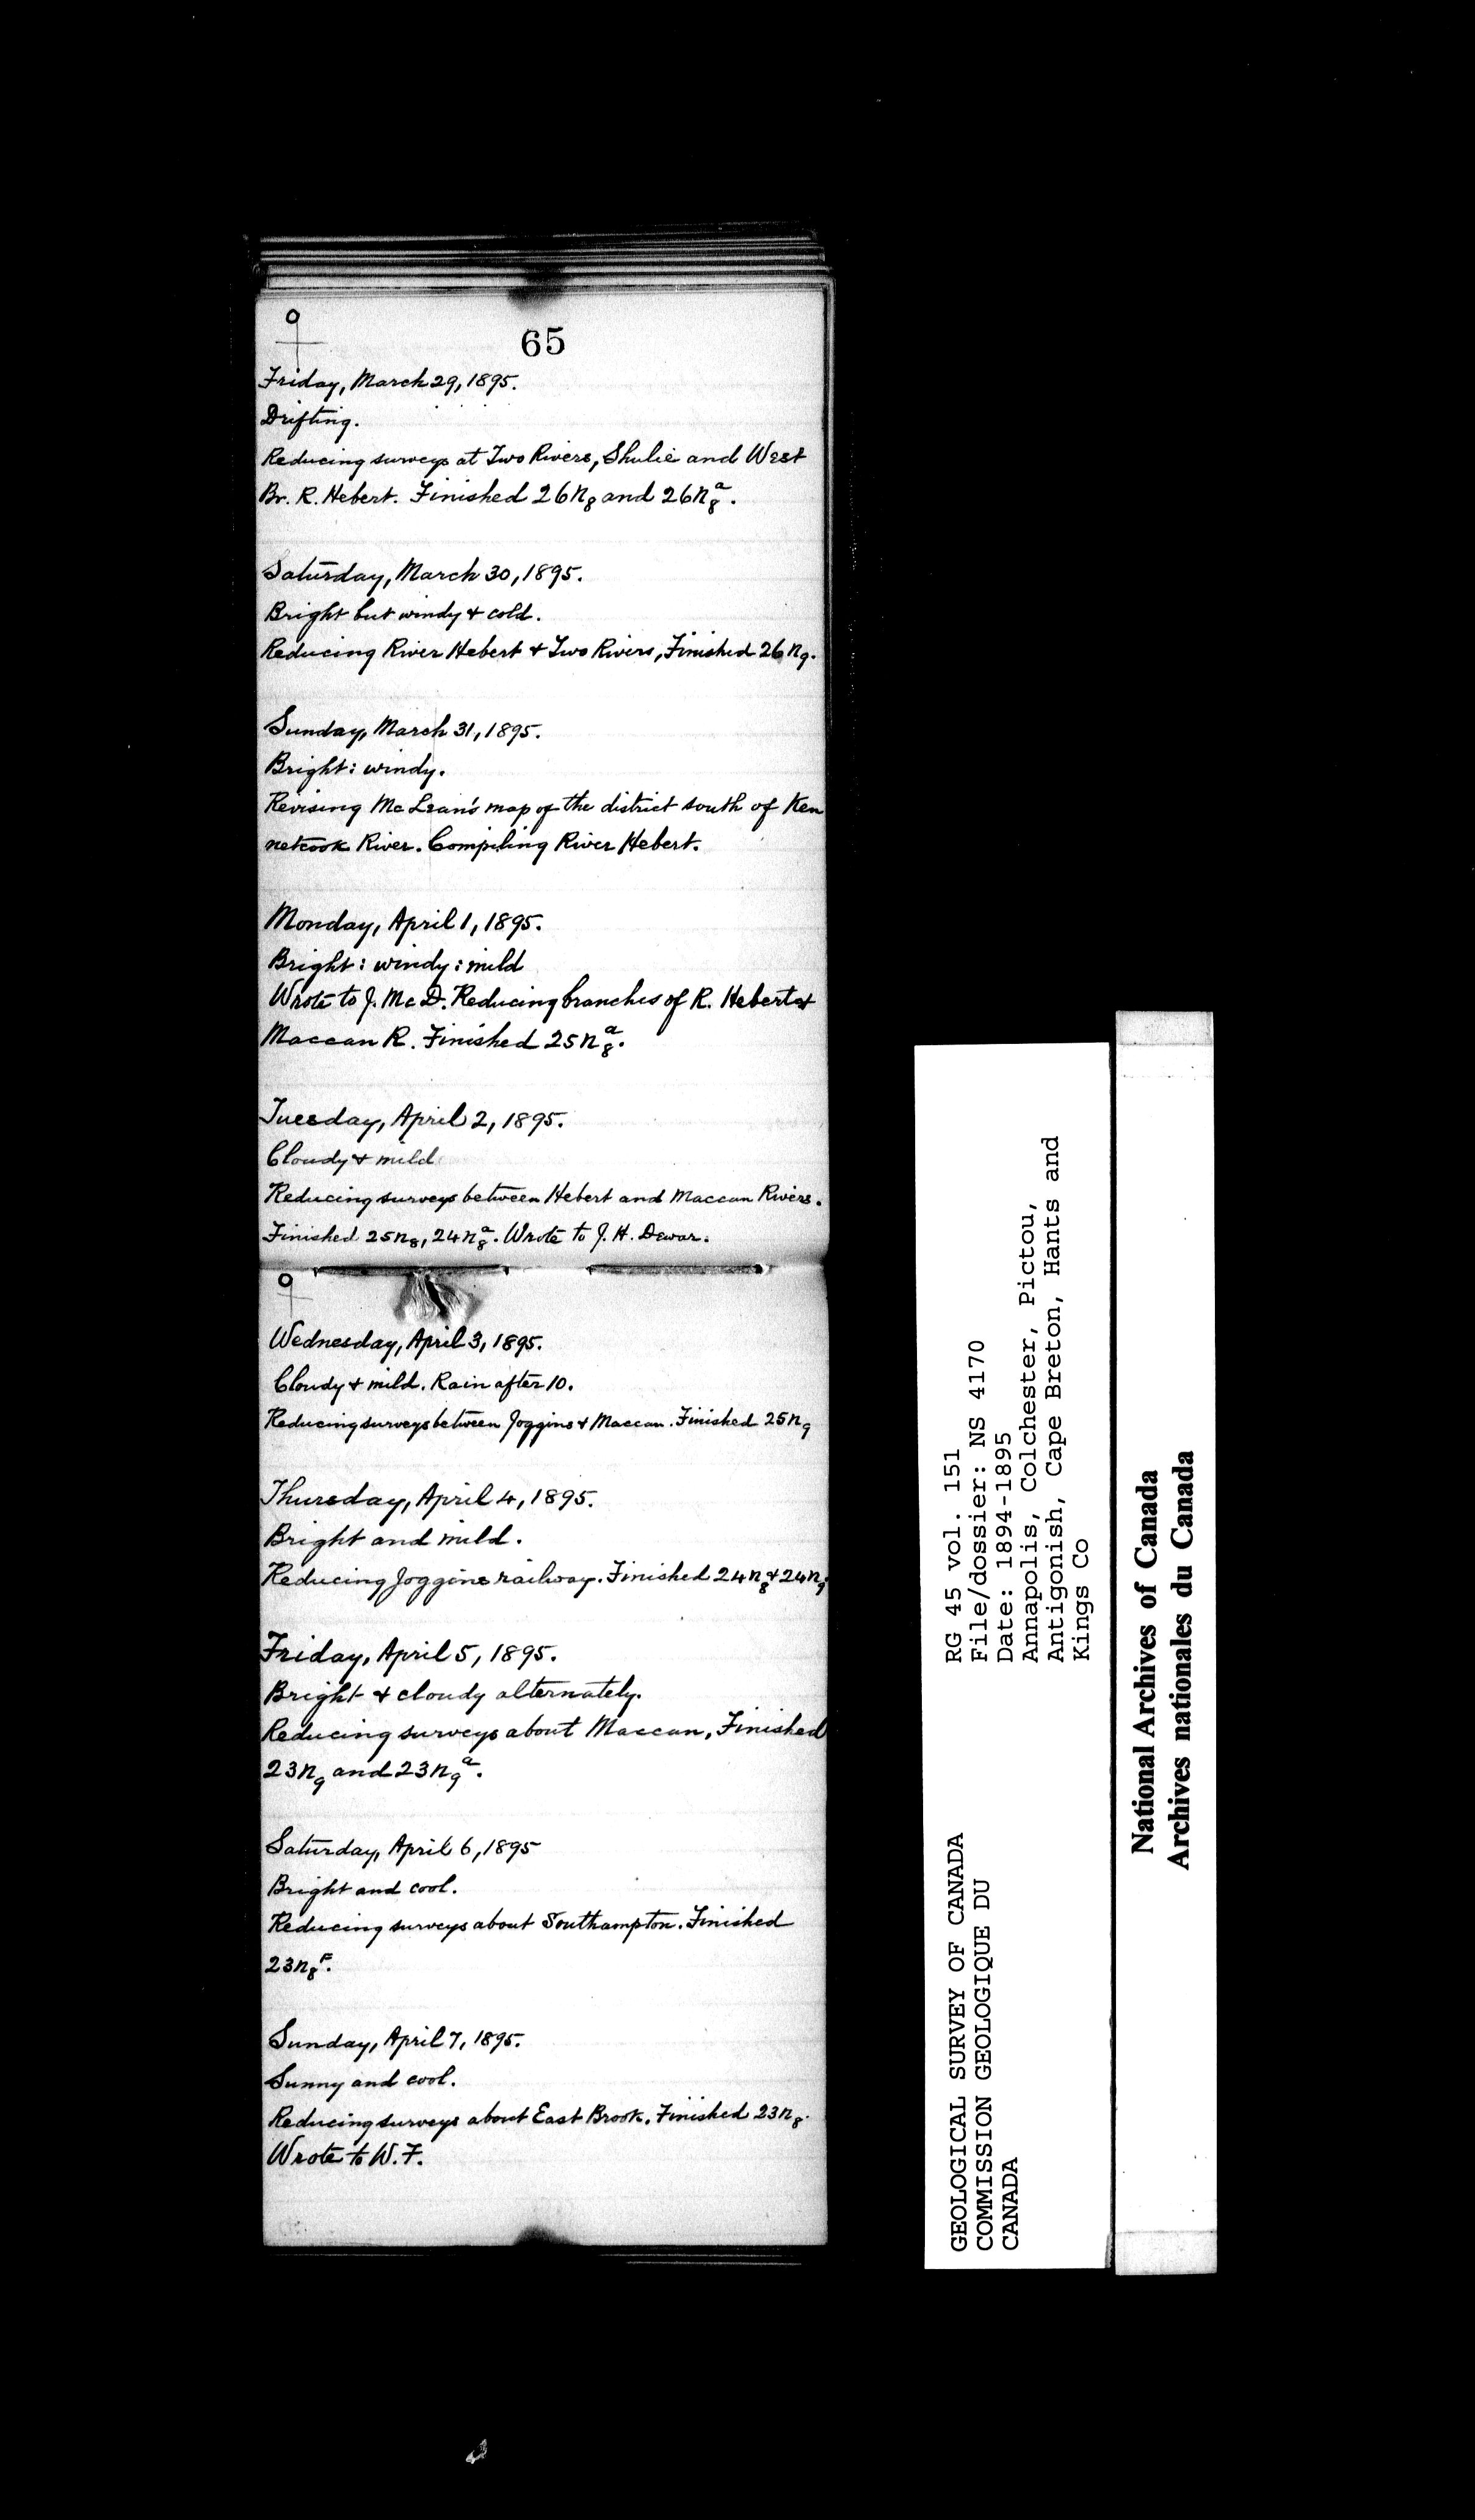 65
Friday, March 29, 1895.
Drifting.
Reducing surveys at Two Rivers, Shulie and West
Br. R. Hebert. Finished 26n8 and 26n8a.
Saturday, March 30, 1895.
Bright but windy & cold.
Reducing River Hebert & Two Rivers, Finished 26n9.
Sunday, March 31, 1895.
Bright: windy.
Revising McLean's map of the district south of Ken
netcook River. Compiling River Hebert.
Monday, April 1, 1895.
Bright: windy: mild
Wrote to J. McD. Reducing branches of R. Hebert &
Maccan R. Finished 25n8a.
Tuesday, April 2, 1895.
Cloudy & mild
Reducing surveys between Hebert and Maccan Rivers.
Finished 25n8, 24n8a. Wrote to J. H. Dewar.
Wednesday, April 3, 1895.
Cloudy & mild. Rain after 10.
Reducing surveys between Joggins & Maccan. Finished 25n9
Thursday, April 4, 1895.
Bright and mild.
Reducing Joggins railway. Finished 24n8 & 24n9
Friday, April 5, 1895.
Bright & cloudy alternately.
Reducing surveys about Maccan, Finished
23n9 and 23n9a.
Saturday, April 6, 1895
Bright and cool.
Reducing surveys about Southampton. Finished
Sunday, April 7, 1895.
Sunny and cool.
Reducing surveys about East Brook. Finished 23n8.
Wrote to W. F.
GEOLOGICAL SURVEY OF CANADA
COMMISSION GEOLOGIQUE DU
CANADA
RG 45 vol. 151
File/dossier: NS 4170
Date: 1894-1895
Annapolis, Colchester, Pictou,
Antigonish, Cape Breton, Hants and
Kings Co
National Archives of Canada
Archives nationales du Canada